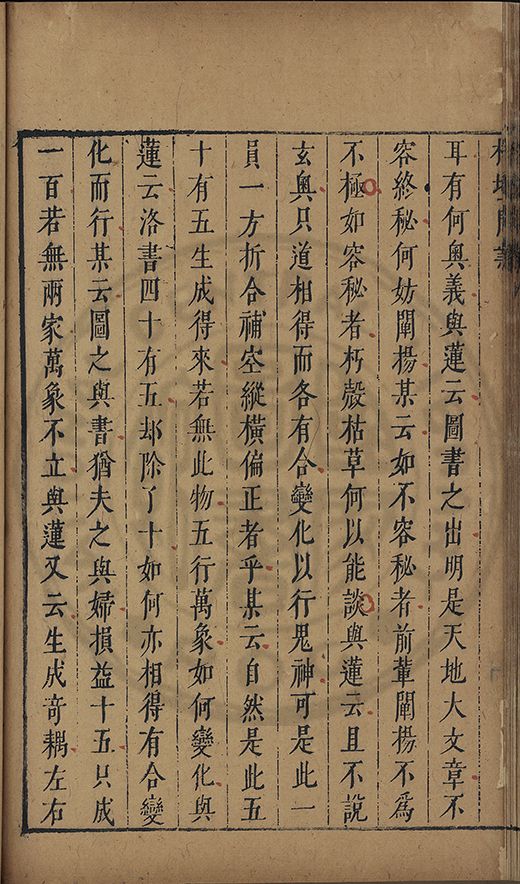 耳有何奧義與蓮云圖書之出明是天地大文章不
容終秘何妨闡揚某云如不容秘者前輩闡揚不為
不極如容秘者朽殼枯草何以能談與蓮云且不說
玄奧只道相得而各有合變化以行鬼神可是此一
員一方折合補空縱橫偏正者乎某云自然是此五
十有五生成得來若無此物五行萬象如何變化與
蓮云洛書四十有五却除了十如何亦相得有合變
化而行某云圖之與書猶夫之與婦損益十五只成
一百若無兩家萬象不立與蓮又云生成奇耦左右